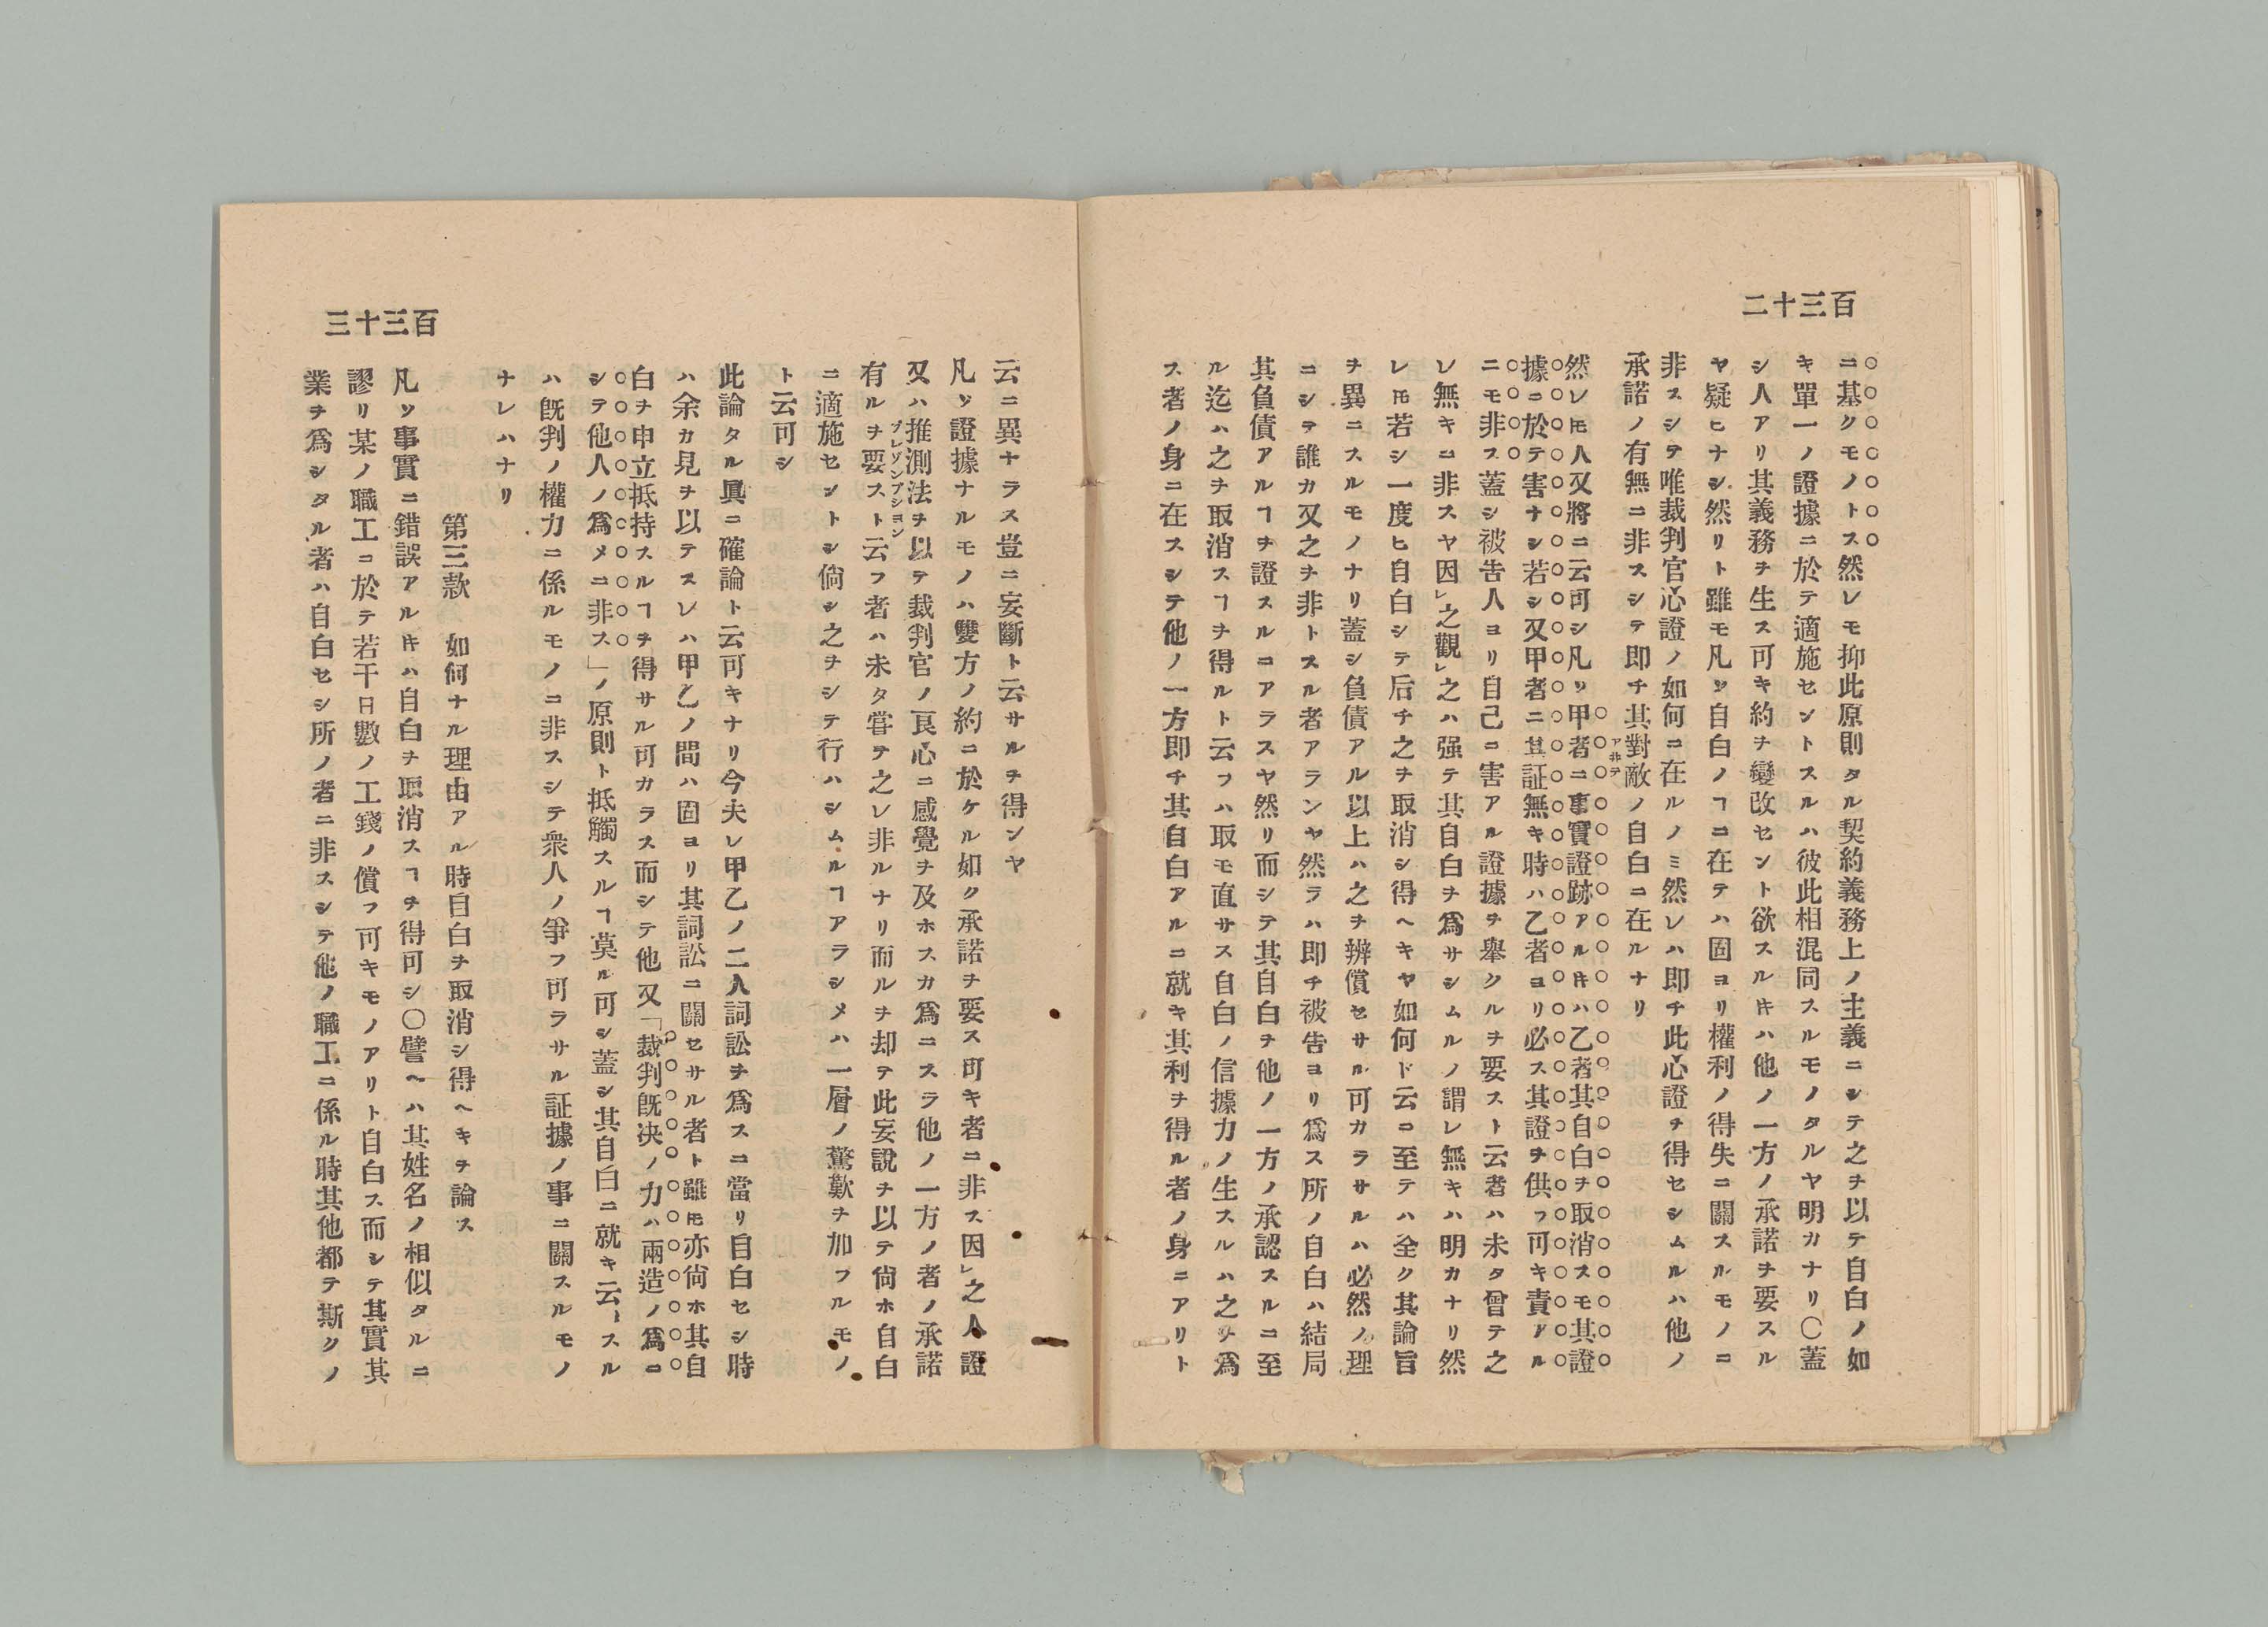 百三十二
ニ基クモノトス然レモ抑此原則タル契約義務上ノ主義ニシテ之ヲ以テ自白ノ如
キ單一ノ證據ニ於テ適施セントスルハ彼此相混同スルモノタルヤ明カナリ〇蓋
シ人アリ其義務ヲ生ス可キ約ヲ變改セント欲スルキハ他ノ一方ノ承諾ヲ要スル
ヤ疑ヒナシ然リト雖モ凡ソ自白ノヿニ在テハ固ヨリ權利ノ得失ニ關スルモノニ
非スシテ唯裁判官心證ノ如何ニ在ルノミ然レハ即チ此心證ヲ得セシムルハ他ノ
承諾ノ有無ニ非スシテ即チ其對敵ノ自白ニ在ルナリ
然レモ人又將ニ云可シ凡ソ甲者ニ事實證跡アルキハ乙者其自白ヲ取消スモ其證
據ニ於テ害ナシ若シ又甲者ニ其証無キ時ハ乙者ヨリ必ス其證ヲ供フ可キ責アル
ニモ非ス蓋シ被告人ヨリ自己ニ害アル證據ヲ舉クルヲ要スト云者ハ未タ曾テ之
レ無キニ非スヤ因レ之觀レ之ハ强テ其自白ヲ爲サシムルノ謂レ無キハ明カナリ然
レモ若シ一度ヒ自白シテ后チ之ヲ取消シ得ヘキヤ如何ド云ニ至テハ全ク其論旨
ヲ異ニスルモノナリ蓋シ負債アル以上ハ之ヲ辨償セサル可カラサルハ必然ノ理
ニシテ誰カ又之ヲ非トスル者アランヤ然ラハ即チ被告ヨリ爲ス所ノ自白ハ結局
其負債アルヿヲ證スルニアラスヤ然リ而シテ其自白ヲ他ノ一方ノ承認スルニ至
ル迄ハ之ヲ取消スヿヲ得ルト云フハ取モ直サス自白ノ信據力ノ生スルハ之ヲ爲
ス者ノ身ニ在スシテ他ノ一方即チ其自白アルニ就キ其利ヲ得ル者ノ身ニアリト
百三十三
云ニ異ナラス豈ニ妄斷ト云サルヲ得ンヤ
凡ソ證據ナルモノハ雙方ノ約ニ於ケル如ク承諾ヲ要ス可キ者ニ非ス因レ之人證
又ハ推測法ヲ以テ裁判官ノ良心ニ感覺ヲ及ホスカ爲ニスラ他ノ一方ノ者ノ承諾
プレゾンプシヨン
有ルヲ要スト云フ者ハ未タ甞テ之レ非ルナリ而ルヲ却テ此妄說ヲ以テ尙ホ自白
ニ適施セントシ倘シ之ヲシテ行ハシムルヿアラシメハ一層ノ驚歎ヲ加フルモノ
ト云可シ
此論タル眞ニ確論ト云可キナリ今夫レ甲乙ノ二人詞訟ヲ爲スニ當リ自白セシ時
ハ余カ見ヲ以テスレハ甲乙ノ間ハ固ヨリ其詞訟ニ關セサル者ト雖モ亦尙ホ其自
白ヲ申立抵持スルヿヲ得サル可カラス而シテ他又「裁判既决ノ力ハ兩造ノ爲ニ
シテ他人ノ爲メニ非ス」ノ原則ト抵觸スルヿ莫ル可シ蓋シ其自白ニ就キ云々スル
ハ旣判ノ權力ニ係ルモノニ非スシテ衆人ノ爭フ可ラサル証據ノ事ニ關スルモノ
ナレハナリ
第三款 如何ナル理由アル時自白ヲ取消シ得ヘキヲ論ス
凡ソ事實ニ錯誤アルキハ自白ヲ取消スヿヲ得可シ〇譬ヘハ其姓名ノ相似タルニ
謬リ某ノ職工ニ於テ若干日數ノ工錢ノ償フ可キモノアリト自白ス而シテ其實其
業ヲ爲シタル者ハ自白セシ所ノ者ニ非スシテ他ノ職工ニ係ル時其他都テ斯クノ